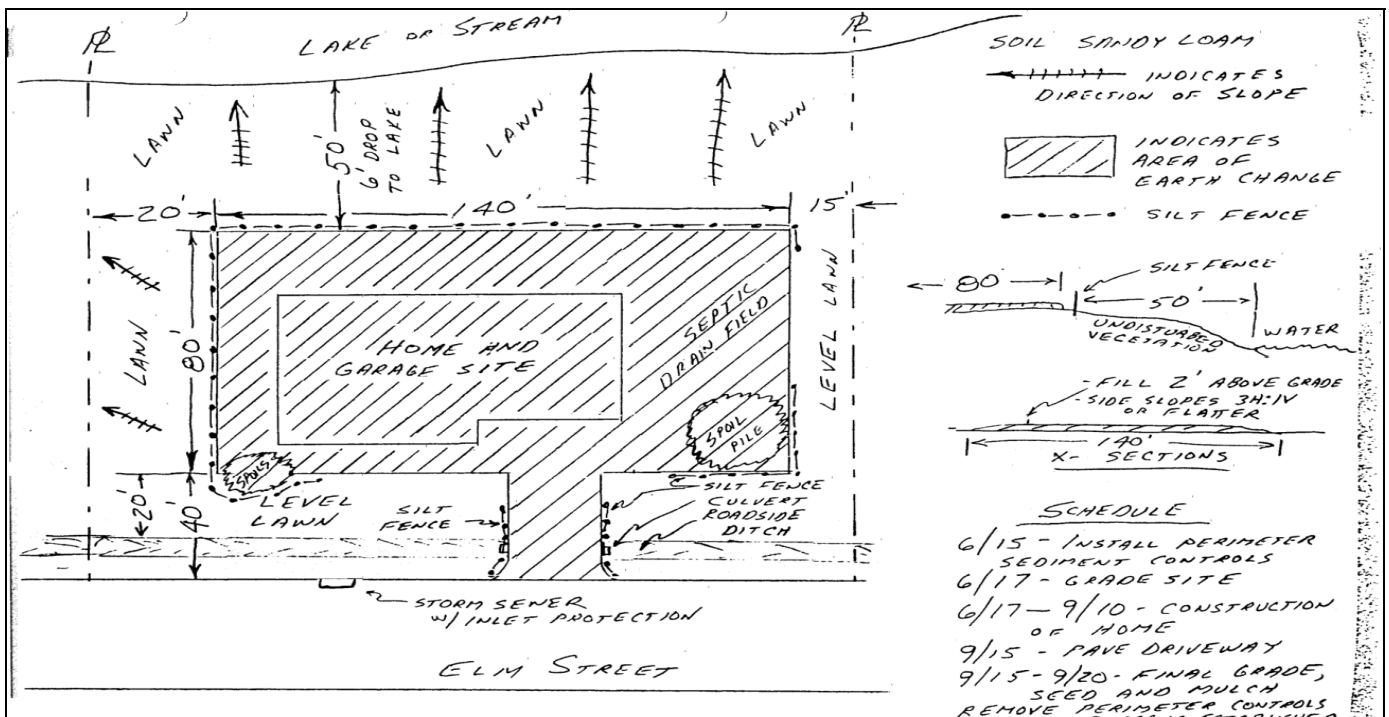 PL
LAKE OR STREAM
PL
LAWN
50'
6' DROP
TO LAKE
LAWN
LAWN
20'
140'
15'
LAWN
80'
HOME AND
GARAGE SITE
SEPTIC
DRAIN FIELD
LEVEL LAWN
SPOIL
PILE
SPOILS
20'
40'
LEVEL
LAWN
SILT
FENCE
SILT FENCE
CULVERT
ROADSIDE
DITCH
STORM SEWER
W/ INLET PROTECTION
ELM STREET
SOIL SANDY LOAM
INDICATES
DIRECTION OF SLOPE
INDICATES
AREA OF
EARTH CHANGE
SILT FENCE
SILT FENCE
80'
50'
UNDISTURBED
VEGETATION
WATER
-FILL 2' ABOVE GRADE
-SIDE SLOPES 3H:1V
OR FLATTER
140'
X-SECTIONS
SCHEDULE
6/15 - INSTALL PERIMETER
SEDIMENT CONTROLS
6/17 - GRADE SITE
6/17 - 9/10 - CONSTRUCTION
OF HOME
9/15 - PAVE DRIVEWAY
9/15 - 9/20 - FINAL GRADE,
SEED AND MULCH
REMOVE PERIMETER CONTROLS